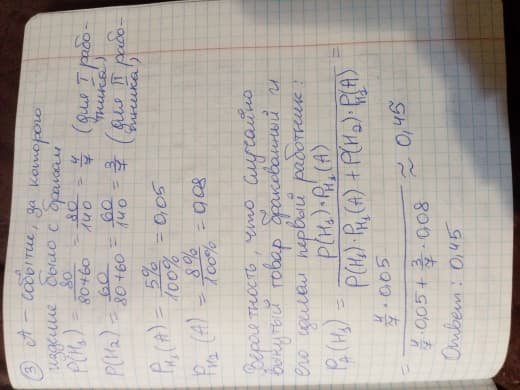 ③ A – событие, за которого
изделие было с браком
P(H₁) = 80/(80+60) = 80/140 = 4/7 (для I работника),
P(H₂) = 60/(80+60) = 60/140 = 3/7 (для II работника),
P_H₁(A) = 5%/100% = 0,05
P_H₂(A) = 8%/100% = 0,08
Вероятность, что случайно
взятый товар бракованный и
его сделал первый работник:
P_A(H₁) = P(H₁)·P_H₁(A) / (P(H₁)·P_H₁(A) + P(H₂)·P_H₂(A)) =
= (4/7 · 0,05) / (4/7 · 0,05 + 3/7 · 0,08) ≈ 0,45
Ответ: 0,45